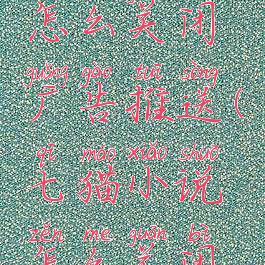 怎么关闭
guǎng gào tuī sòng
广告推送(
qī māo xiǎo shuō
七猫小说
zěn me guān bì
怎么关闭